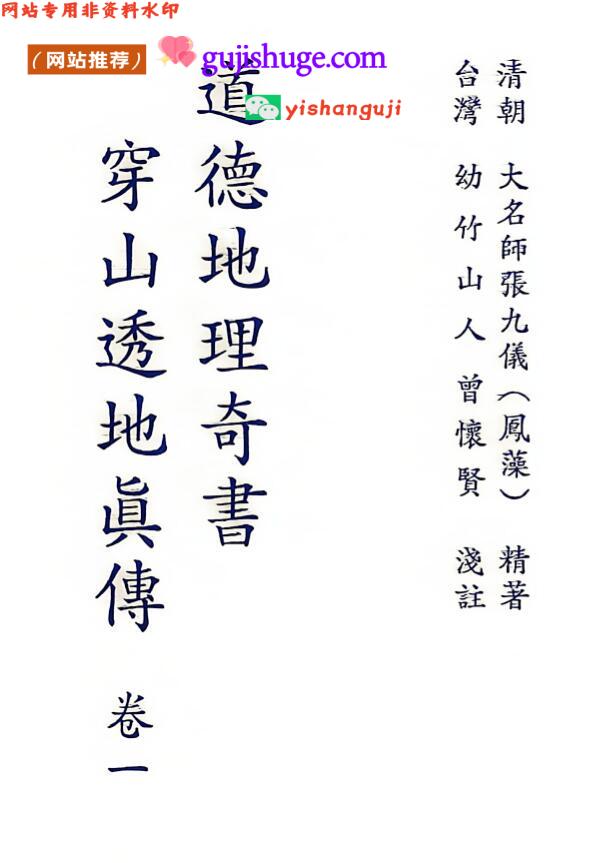 网站专用非资料水印
（网站推荐） gujishuge.com
yishanguji
清朝 大名師張九儀（鳳藻） 精著
台灣 幼竹山人曾懷賢 淺註
道德地理奇書
穿山透地眞傳 卷一